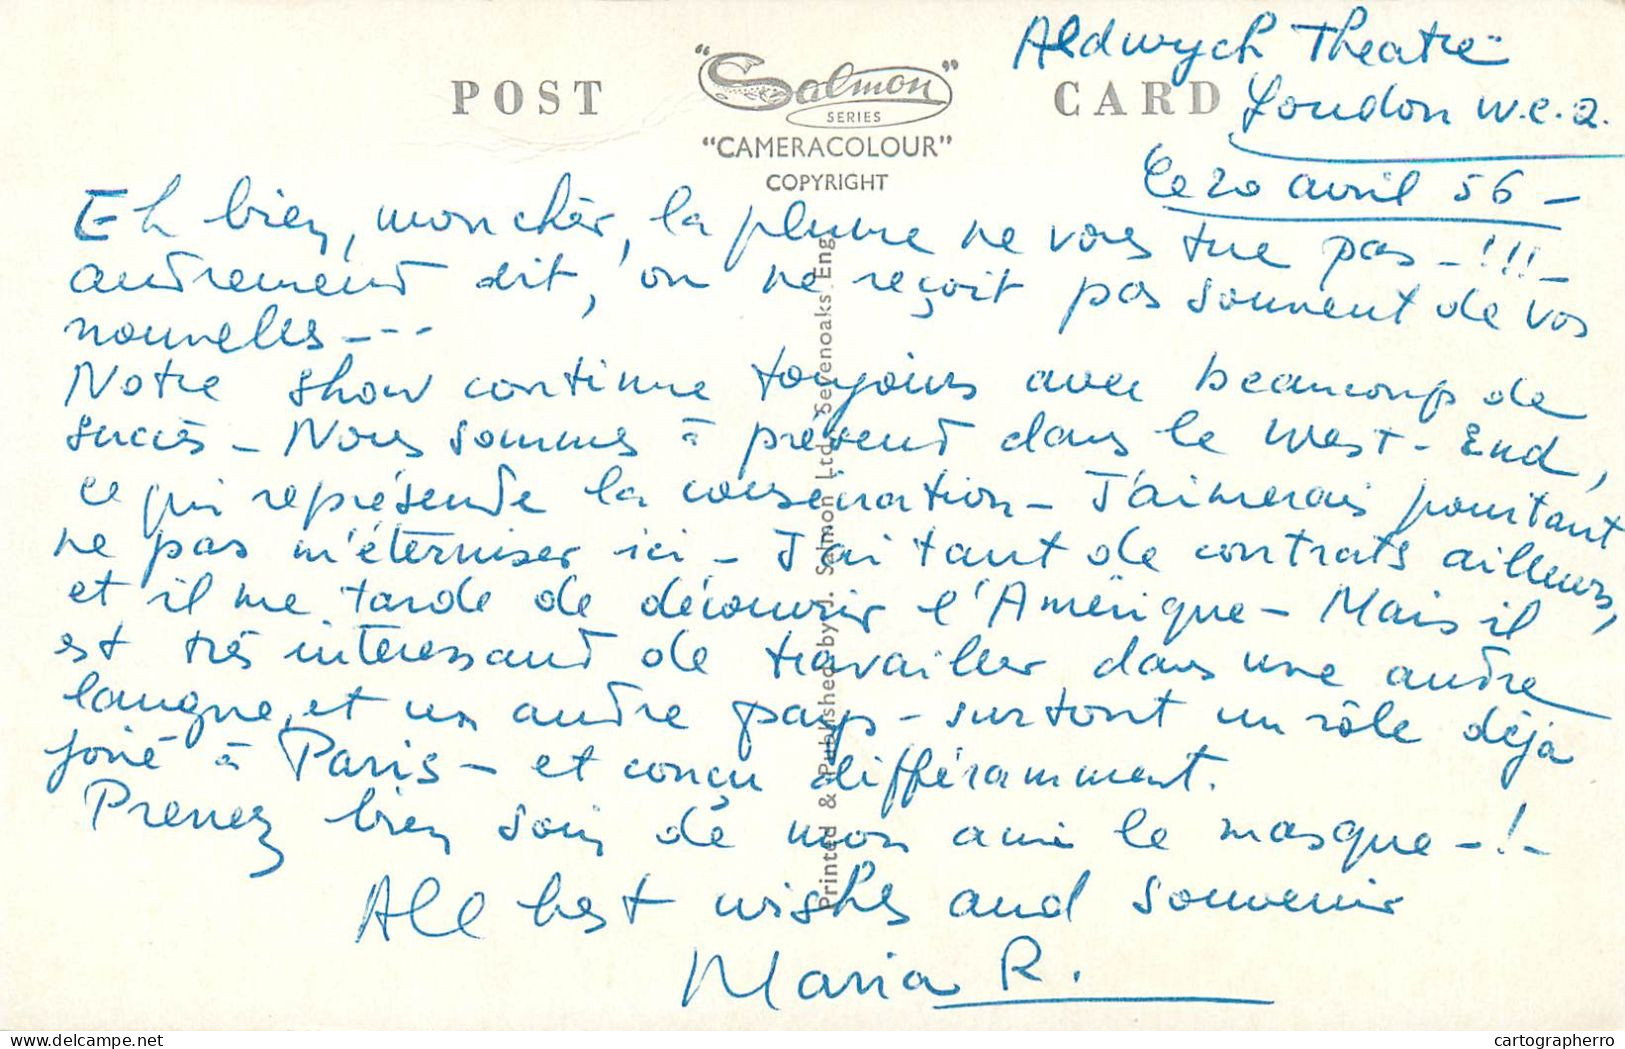 Aldwych Theatre
POST "Salmon" CARD
SERIES
London W.C.2.
"CAMERACOLOUR"
COPYRIGHT
Le 20 avril 56 -
Eh bien, mon cher, la plume ne vous tue pas - !!! -
autrement dit, on ne reçoit pas souvent de vos
nouvelles - - -
Notre show continue toujours avec beaucoup de
succès - Nous sommes à présent dans le West-End,
ce qui représente la consécration - J'aimerais pourtant
ne pas m'éterniser ici - J'ai tant de contrats ailleurs,
et il me tarde de découvrir l'Amérique - Mais il
est très interessant de travailler dans une autre
langue, et un autre pays - surtout un rôle déjà
joué à Paris - et conçu différamment.
Prenez bien soin de mon ami le masque - ! -
All best wishes and souvenir
Maria R.
Printed & Published by J. Salmon Ltd., Sevenoaks Eng
delcampe.net
cartographerro